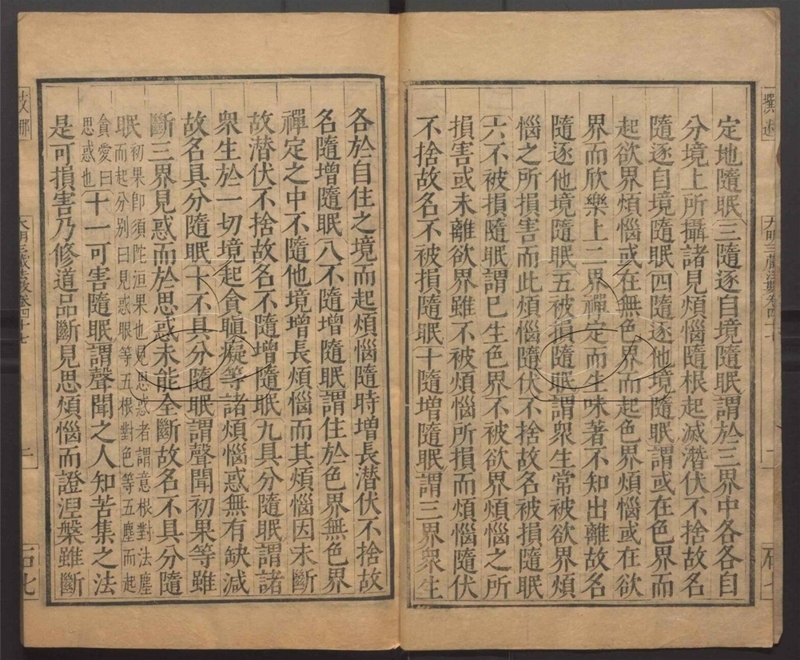 撰述
大明三藏法數卷四十七
定地隨眠三隨逐自境隨眠謂於三界中各各自
分境上所攝諸見煩惱隨根起滅潛伏不捨故名
隨逐自境隨眠四隨逐他境隨眠謂或在色界而
起欲界煩惱或在無色界而起色界煩惱或在欲
界而欣樂上二界禪定而生味著不知出離故名
隨逐他境隨眠五被損隨眠謂眾生常被欲界煩
惱之所損害而此煩惱隨伏不捨故名被損隨眠
六不被損隨眠謂巳生色界不被欲界煩惱之所
損害或未離欲界雖不被煩惱所損而煩惱隨伏
不捨故名不被損隨眠七隨增隨眠謂三界眾生
各於自住之境而起煩惱隨時增長潛伏不捨故
名隨增隨眠八不隨增隨眠謂住於色界無色界
禪定之中不隨他境增長煩惱而其煩惱因未斷
故潛伏不捨故名不隨增隨眠九具分隨眠謂諸
眾生於一切境起貪瞋癡等諸煩惱惑無有缺減
故名具分隨眠十不具分隨眠謂聲聞初果等雖
斷三界見惑而於思惑未能全斷故名不具分隨
眠初果即須陀洹果也見思惑者謂意根對法塵
而起分別曰見惑眼等五根對色等五塵而起
貪愛曰
思惑也十一可害隨眠謂聲聞之人知苦集之法
是可損害乃修道品斷見思煩惱而證涅槃雖斷
支那
大明三藏法數卷四十七
二
石七